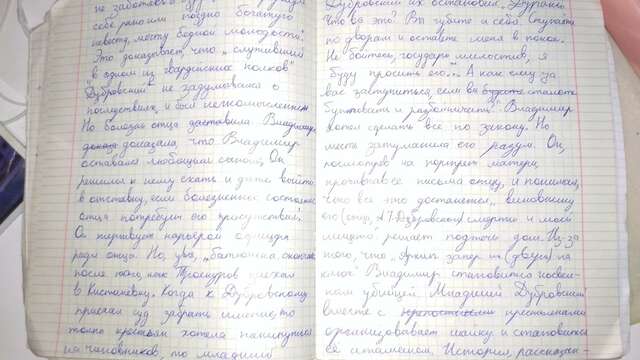 не заботясь о
себе рано или поздно богатую
невесту, мечту бедной молодости".
Это доказывает, что "служивший
в одном из гвардейских полков"
Дубровский не задумывался о
последствиях, и был легкомысленным
Но болезнь отца заставила Владимира
доказала, что Владимир
оставался любящим сыном. Он
решился к нему ехать и даже выйти
в отставку, если болезненное состояние
отца потребует его присутствия.
Он жертвует карьерой офицера
ради отца. Но, увы, "батюшка скончался
после того, как Троекуров приехал
в Кистеневку. Когда к Дубровскому
приехал суд забрать имение, то
толпа крестьян хотела накинуться
на чиновников, то младший
Дубровский их остановил. "Дураки!
Что вы это? Вы губите и себя, ступайте
по дворам и оставьте меня в покое.
Не бойтесь, государь милостив, я
буду просить его... А как ему за
вас заступиться, если вы станете
бунтовать и разбойничать". Владимир
хотел сделать все по закону. Но
месть затуманила его разум. Он,
посмотрев на портрет матери,
прочитав ее письма отцу, и понимая,
что все это достанется "виновнику
его (стар. А.Г. Дубровского) смерти и моей
нищеты" решает поджечь дом. Из-за
того, что "Архип запер их (двери) на
ключ" Владимир становится косвен-
ным убийцей. Младший Дубровский
вместе с крестьянами
организовывает шайку и становится
её атаманом. История рассказы-